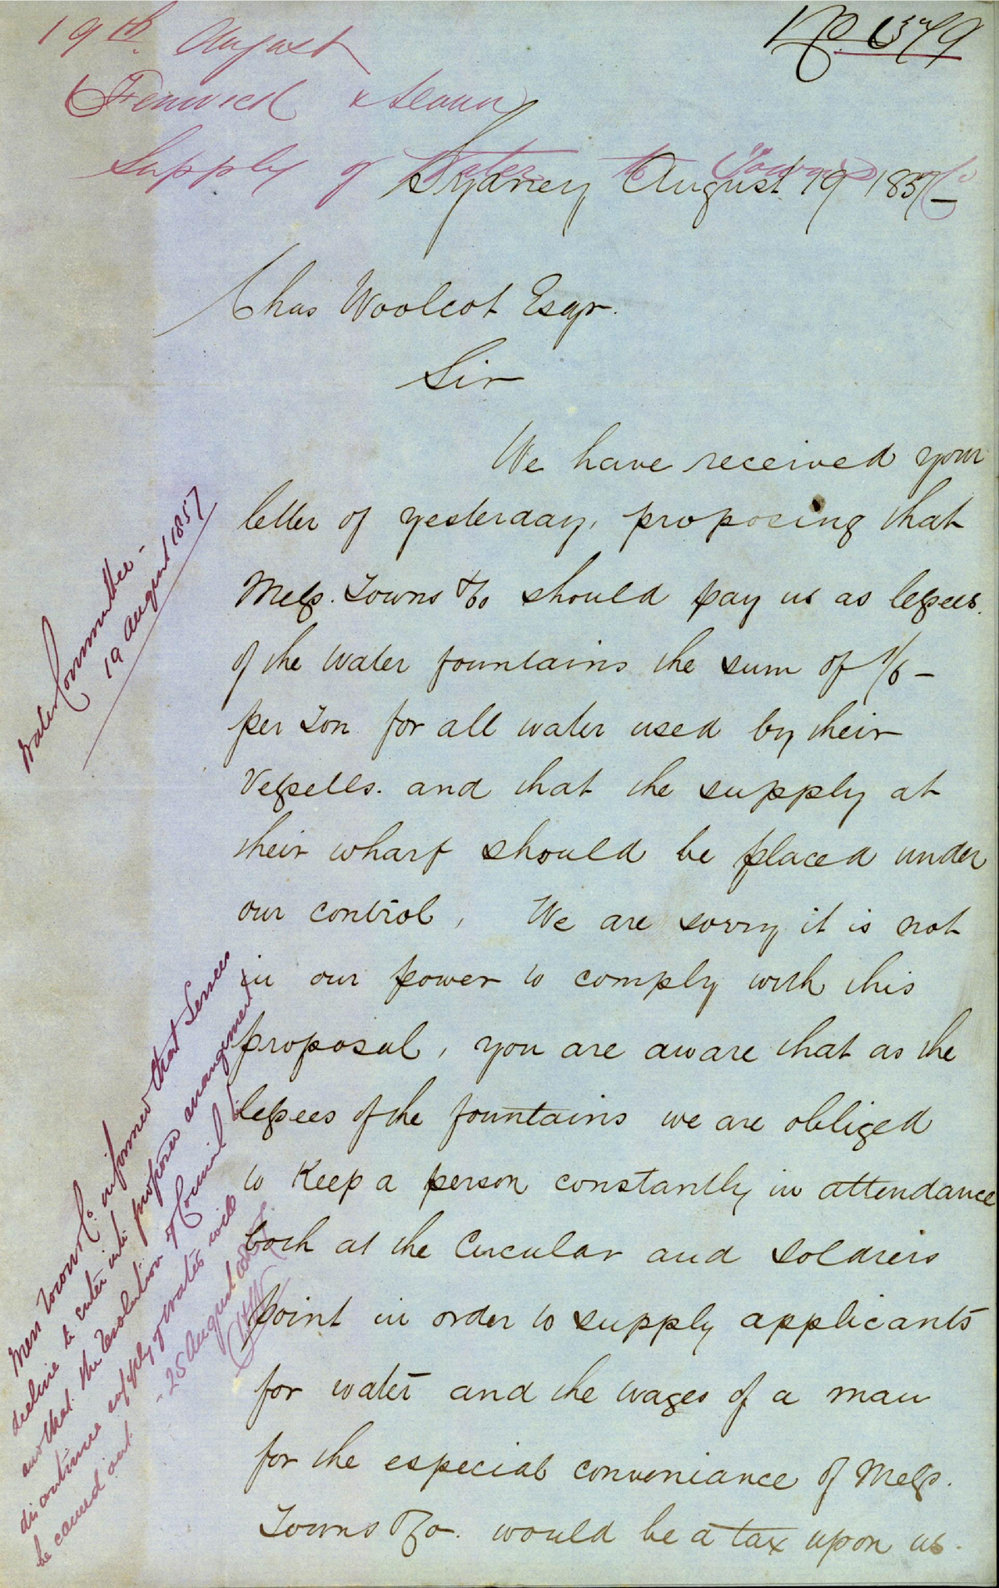 19th August
Fenwick &
Supply of Water to Towns & Co
No 1379
Sydney August 19 1857
Chas Woolcot Esqr.
Sir
We have received your
letter of yesterday, proposing that
Mess. Towns & Co should pay us as lessees.
of the water fountains the sum of 1/6 –
per Ton for all water used by their
Vessells. and that the supply at
their wharf should be placed under
our control, We are sorry it is not
in our power to comply with this
proposal, you are aware that as the
lessees of the fountains we are obliged
to Keep a person constantly in attendance
both at the Circular and soldiers
point in order to supply applicants
for water and the wages of a man
for the especial conveniance of Mess.
Towns & Co. would be a tax upon us.
Water Committee –
19 August 1857
Mess Towns & Co. informed that Lessees
decline to enter into proposed arrangement
and that the Resolution of Council to
discontinue supply of water will
be carried out
– 25 August